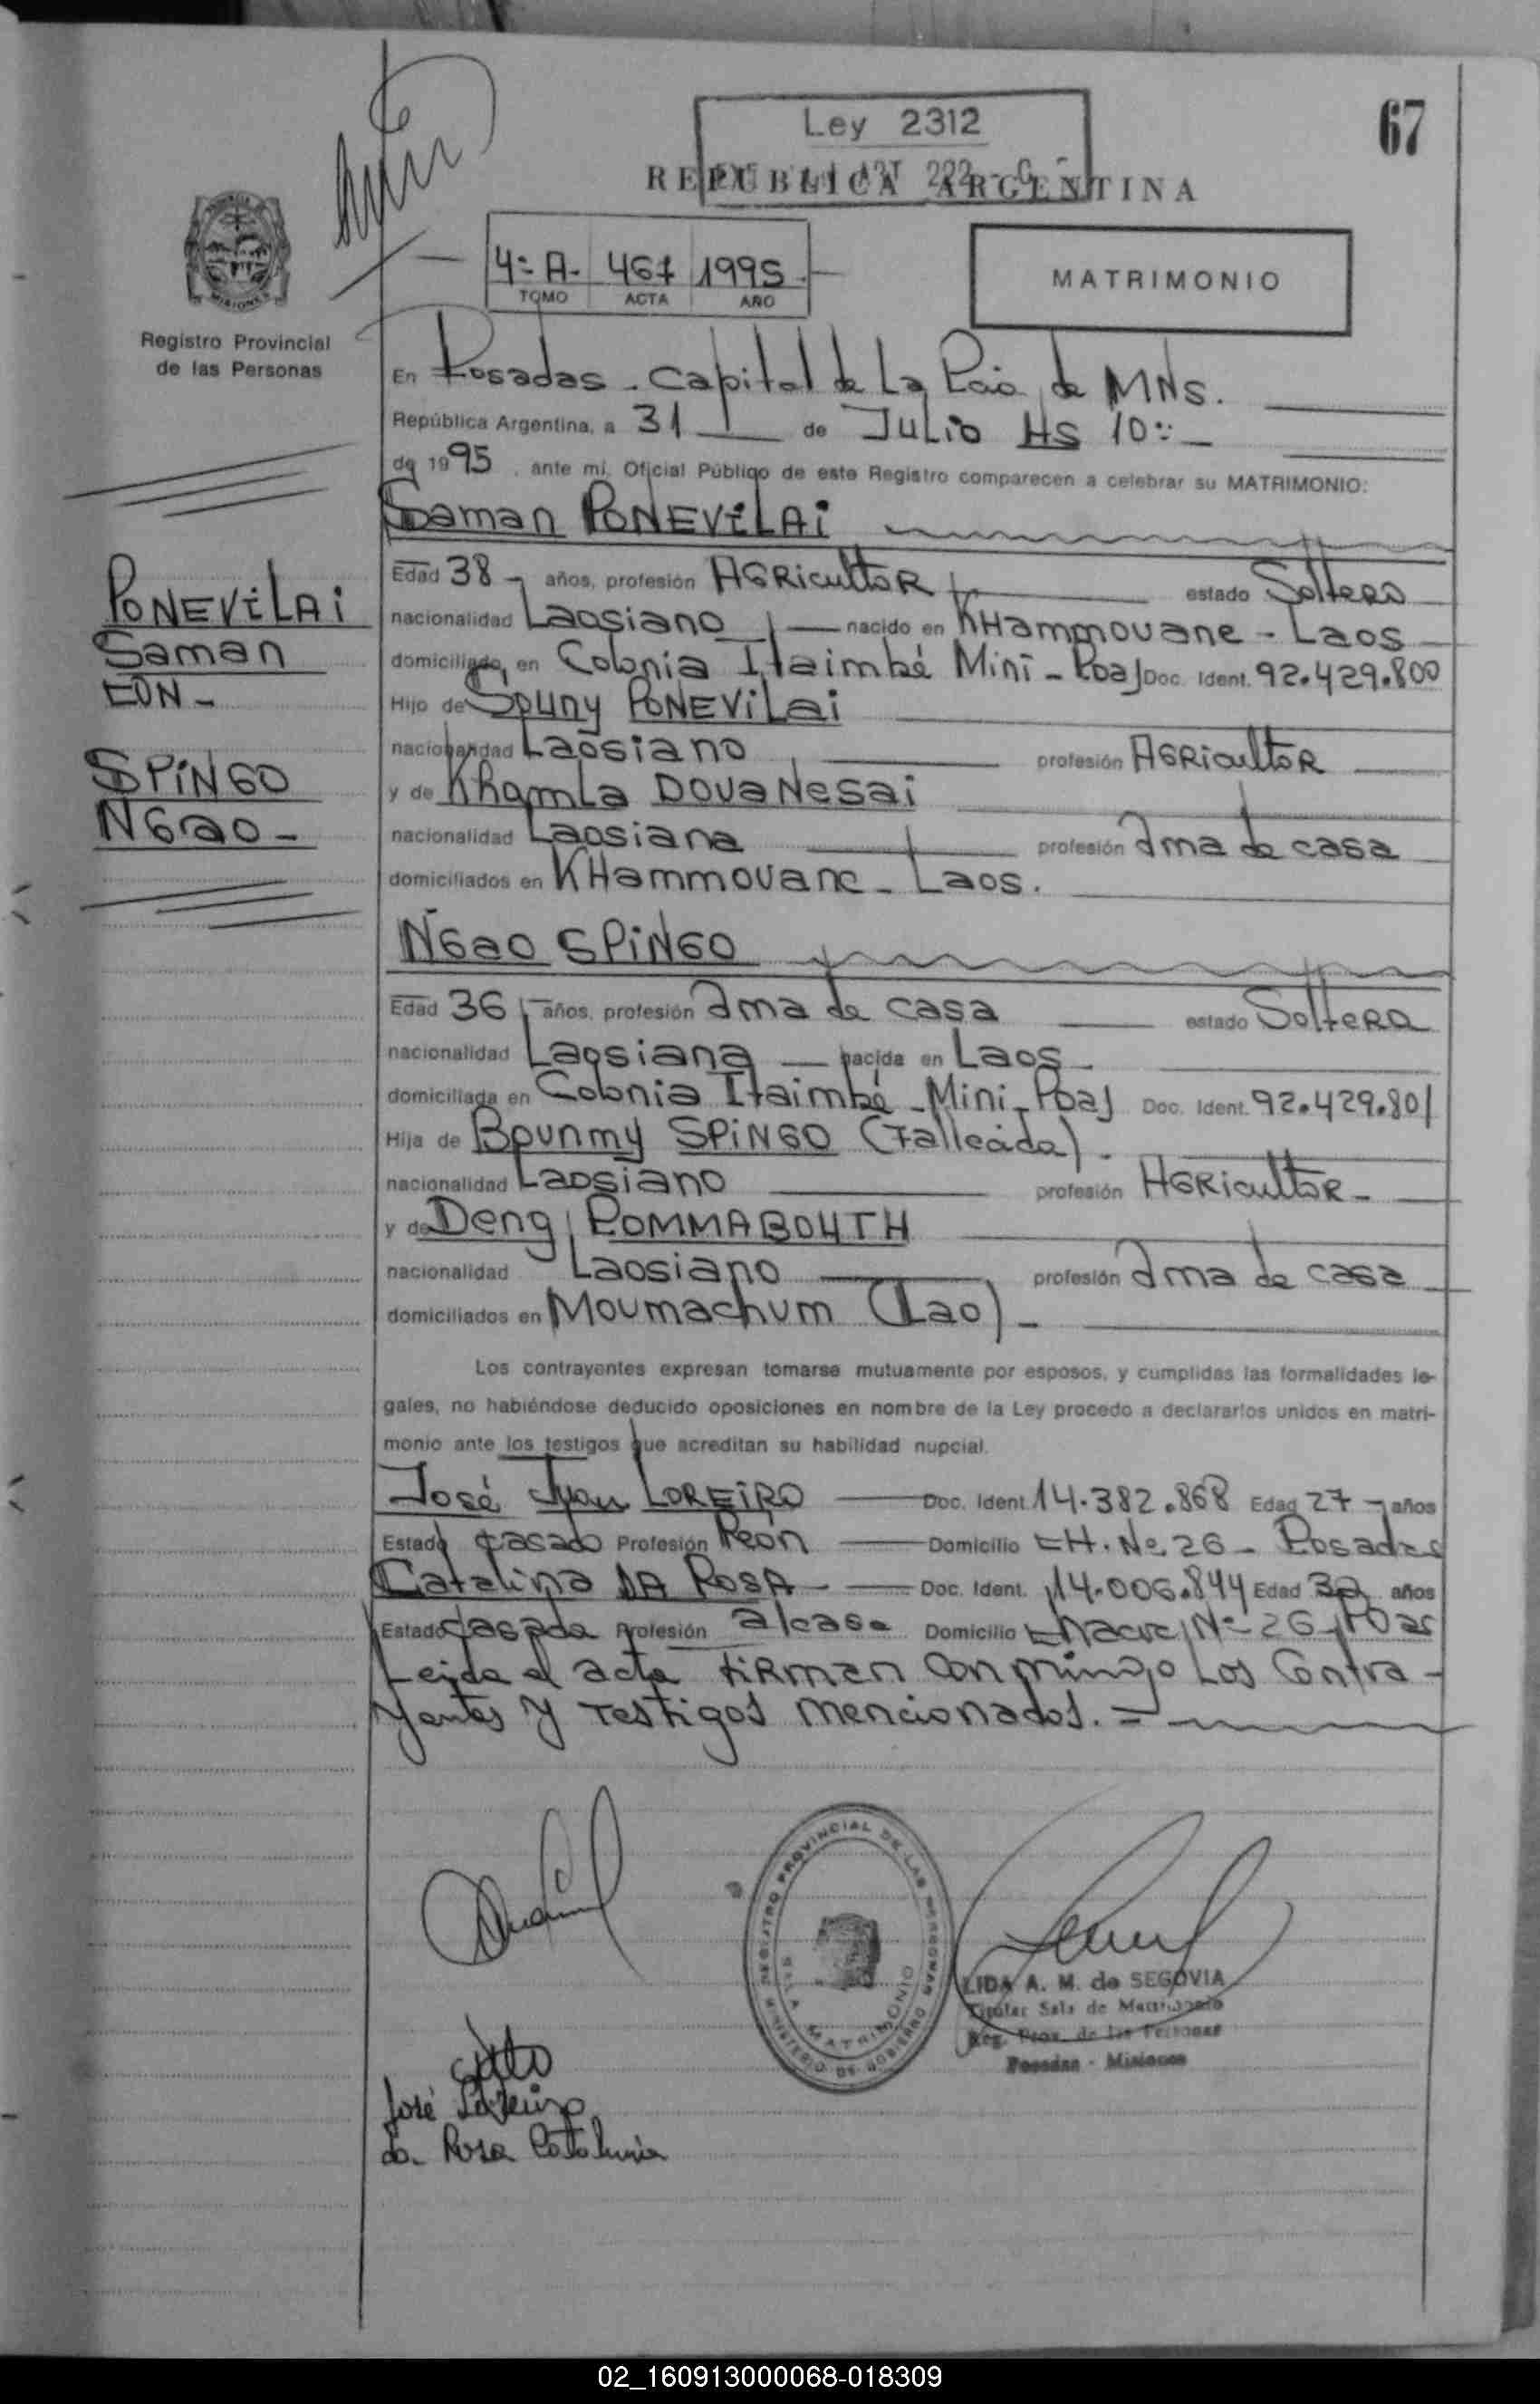 67
Ley 2312
REPUBLICA ARGENTINA
4º A- 467 1995
TOMO ACTA AÑO
MATRIMONIO
MISIONES
Registro Provincial
de las Personas
En Posadas - Capital de La Pcia de MNs.
República Argentina, a 31 de Julio Hs 10:-
de 1995, ante mí, Oficial Público de este Registro comparecen a celebrar su MATRIMONIO:
Saman PONEViLAi
Edad 38 - años, profesión AGRicultoR estado SolteRo
nacionalidad Laosiano nacido en KHammouane - Laos
domiciliado en Colonia Itaimbé Mini - Pdas Doc. Ident. 92.429.800
Hijo de Spuny PONEViLai
nacionalidad Laosiano profesión AGRicultoR
y de Khamla DOUaNesai
nacionalidad Laosiana profesión Ama de casa
domiciliados en KHammouane - Laos.
PONEViLAi
Saman
CON -
SPiNGO
NGao -
NGao SPiNGO
Edad 36 - años, profesión Ama de casa estado SolteRa
nacionalidad Laosiana - nacida en Laos -
domiciliada en Colonia Itaimbé - Mini - Pdas Doc. Ident. 92.429.801
Hija de Bounmy SPiNGO (Fallecido).
nacionalidad Laosiano profesión AGRicultoR -
y de Deng POMMABOUTH
nacionalidad Laosiano profesión Ama de casa
domiciliados en Moumachum (Lao) -
Los contrayentes expresan tomarse mutuamente por esposos, y cumplidas las formalidades le-
gales, no habiéndose deducido oposiciones en nombre de la Ley procedo a declararlos unidos en matri-
monio ante los testigos que acreditan su habilidad nupcial.
José Juan LOREiRO Doc. Ident. 14.382.868 Edad 27 - años
Estado casado Profesión Peón Domicilio CH. Nº 26 - Posadas
Catalina DA ROSA - Doc. Ident. 14.006.844 Edad 32 años
Estado casada Profesión a/casa Domicilio Chacra Nº 26 Pdas
Leida el acta firman conmingo Los Contra-
yentes y Testigos mencionados. =
REGISTRO PROVINCIAL DE LAS PERSONAS
MINISTERIO DE GOBIERNO
SALA MATRIMONIO
LIDA A. M. de SEGOVIA
Titular Sala de Matrimonio
Reg. Prov. de las Personas
Posadas - Misiones
José Loreiro
da Rosa Catalina
02_160913000068-018309